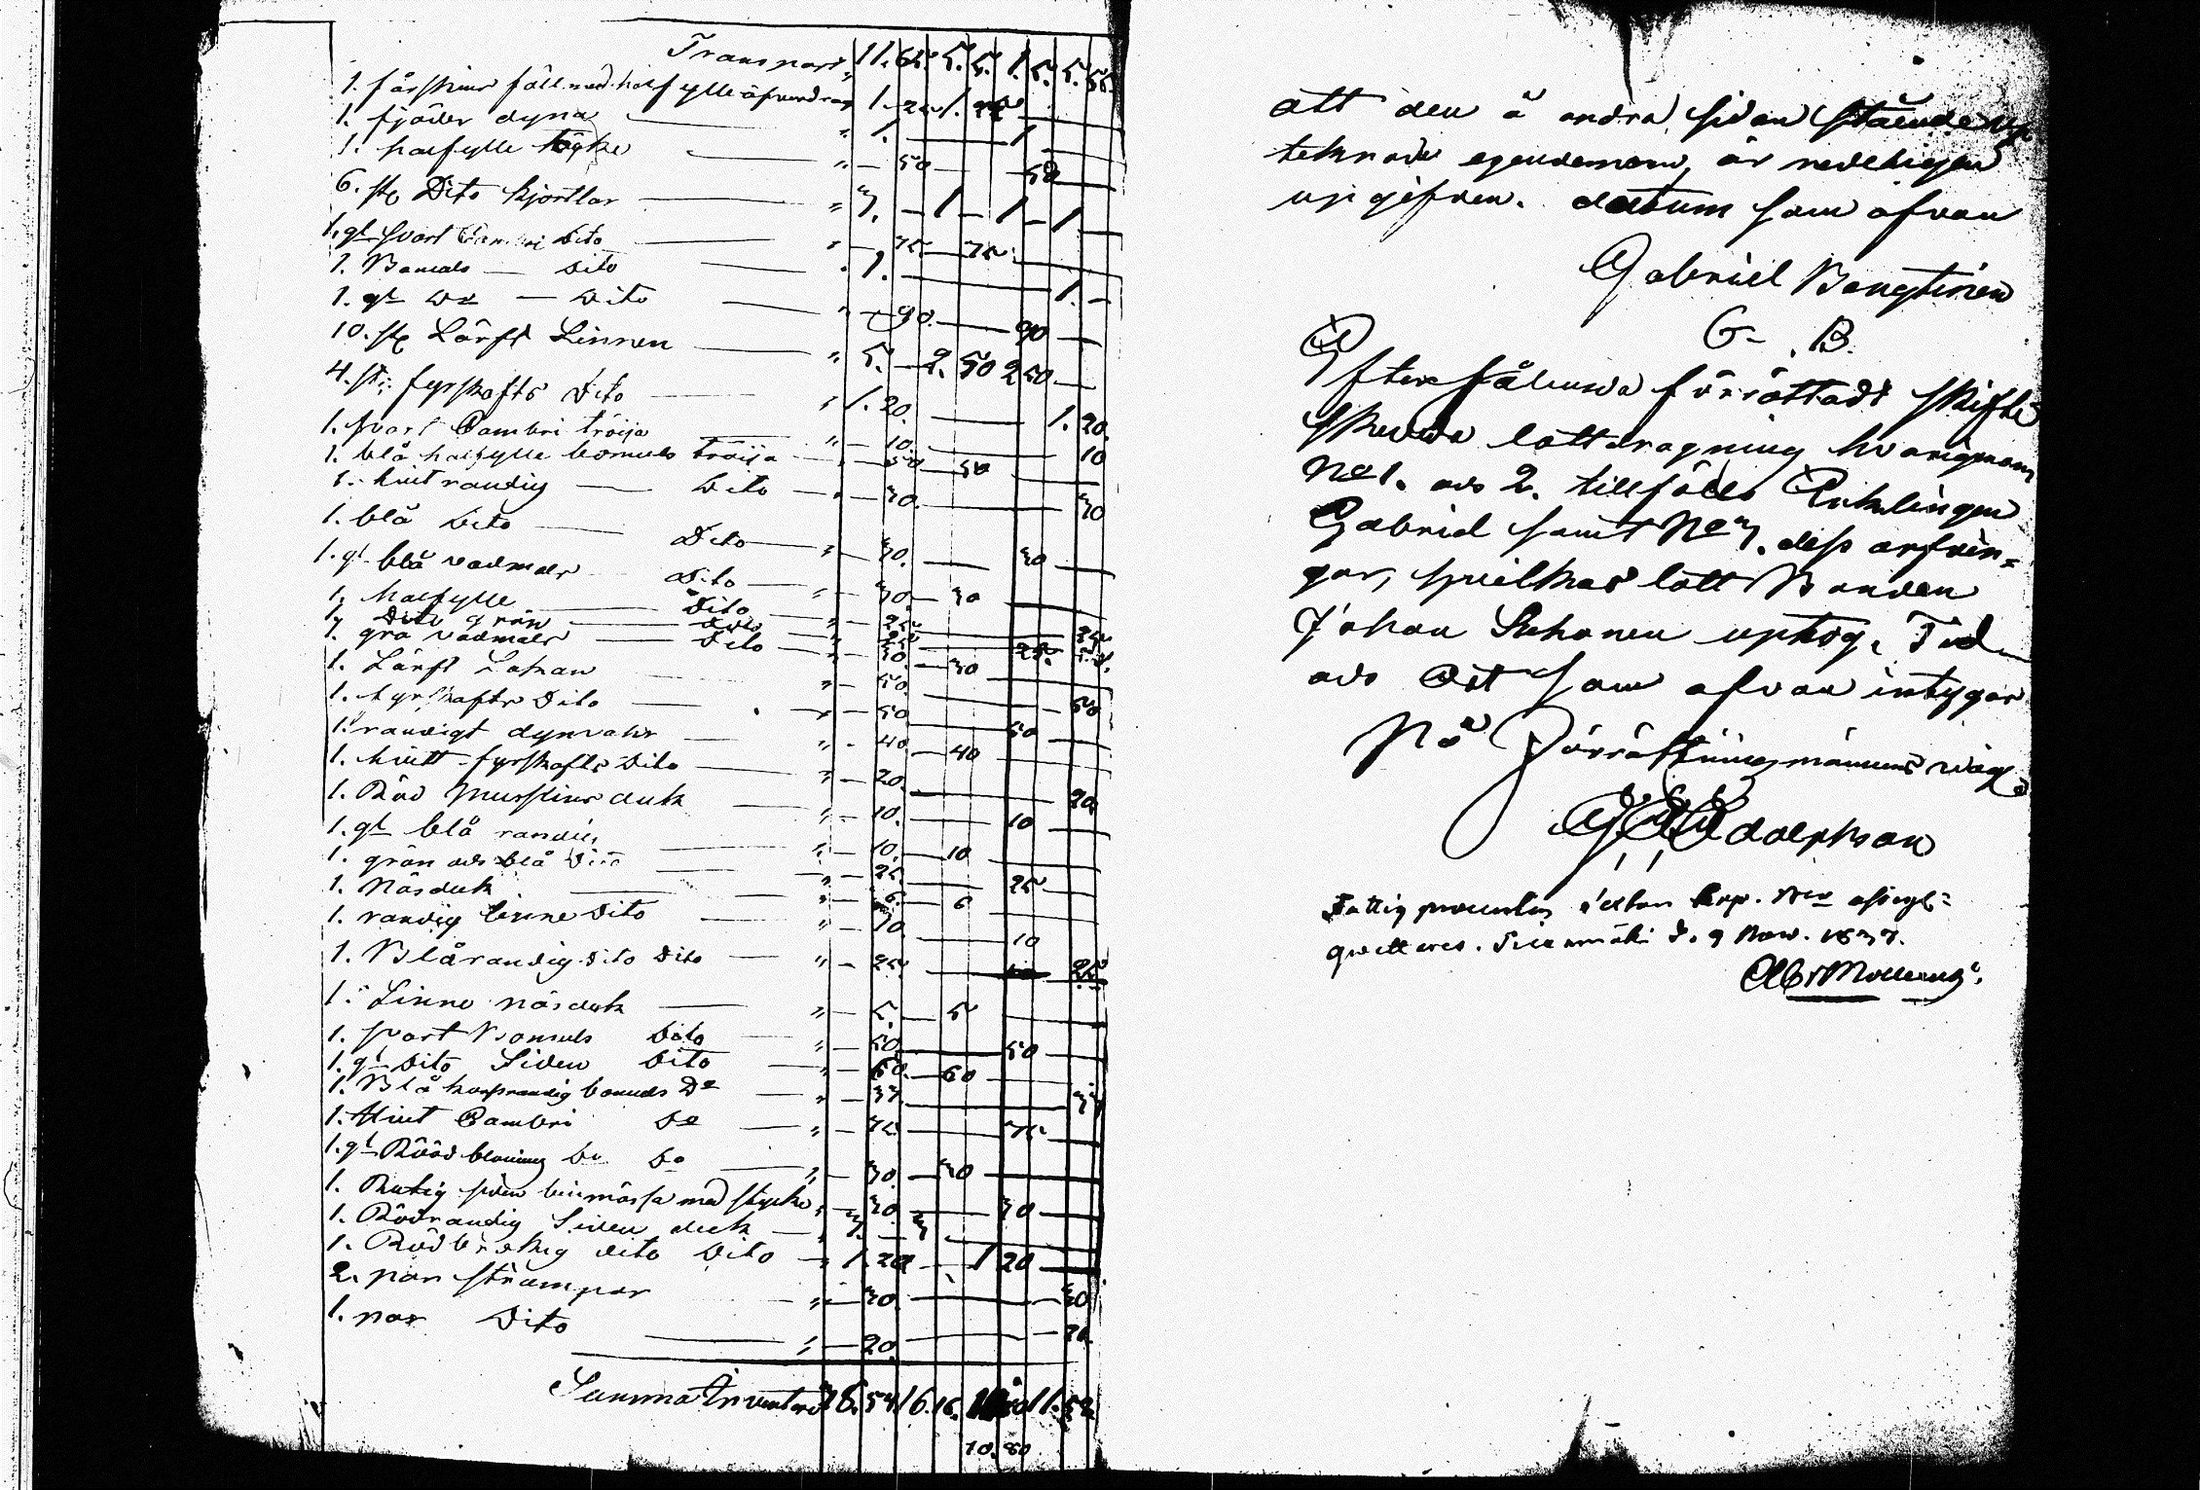 Transport " 11. 65. 5. 5. 1. 5. 5. 55.
1. fårskins fäll med halfylle öfverdrag 1. 25 1. 25
1. fjäder dyna " 1. 1
1. halfylle täcke " 50 50
6. st. Dito kjortlar " 3. 1 1 1
1. gl svart Cambri Dito " 75 75
1. Bomuls Dito " 1. 1.
1. gl Do Dito " 90. 90
10. st. Lärft Linnen " 5. 2. 50 2 50
4. st. fyrskafts Dito " 1. 20. 1. 20.
1. svart Cambri tröija " 10. 10
1. blå halfylle bomuls tröija " 50 50
1. hvitrandig Dito " 30. 30
1. blå Dito Dito " 30. 30
1. gl blå vadmals Dito " 30. 30
1. halfylle Dito " 25 25
1. Dito grön Dito " 25 25.
1. grå vadmals Dito " 30. 30
1. Lärft Lakan " 50. 50
1. fyrskafts Dito 50. 50
1. randigt dynvahr " 40. 40
1. hvitt fyrskafts Dito " 20. 20
1. Röd Musslins duk " 10. 10
1. gl blå randig " 10. 10
1. grön och blå Dito " 25. 25
1. Näsduk " 6. 6
1. randig linne Dito " 10. 10
1. Blårandig Dito Dito " 25 25
1. Linne näsduk " 5. 5
1. svart Bomuls Dito " 50. 50
1. gl Dito Siden Dito " 60. 60
1. Blå korsrandig bomuls Do " 33. 33
1. Hvit Cambri Do " 75. 75
1. gl Röd blommig Do Do " 30. 30
1. Rutig siden binmössa med stycke " 30. 30
1. Rödrandig Siden duk 3. 3
1. Rödbrokig dito Dito 1. 20 1 20
2. par strumpor " 30. 30
1. par Dito " 20. 20
Summa Inventarii 38. 54. 16. 16. 11. 52
10. 80
att den å andra sidan stående up
teknade egendomen, är redeligen
upgifven. datum som ofvan
Gabriel Bengtinen
G. B.
Efter sålunda förrättadt skifte
skedde lottdragning hvarigenom
No 1. och 2. tillföllo Enklingen
Gabriel samt No 3. dess arfvin=
gar, hvilkas lott Bonden
Johan Suhonen uptog. Tid
och Ort som ofvan intygar
På Förrättningsmännens wägnar
Adolphson
Fattig procenten
qvitteras. d. 9 Nov. 1837.